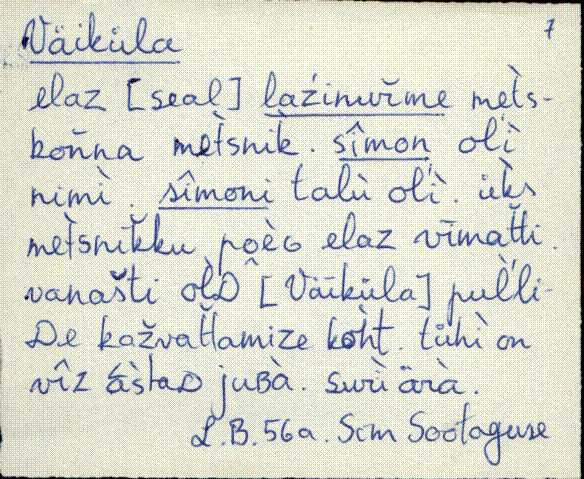 Väiküla 7
elaz [seal] laźinurme mèts-
kon̆na mètsnik. sîmon olì
nimì. sîmoni talù olì. üks
mètsnikku poèG elaz vīmatti.
vanašti olD [Väiküla] pulli-
De kažvattamize koht. tühi on
vîz ástaD juBà. surì ärà.
L.B. 56a. Sim Sootaguse